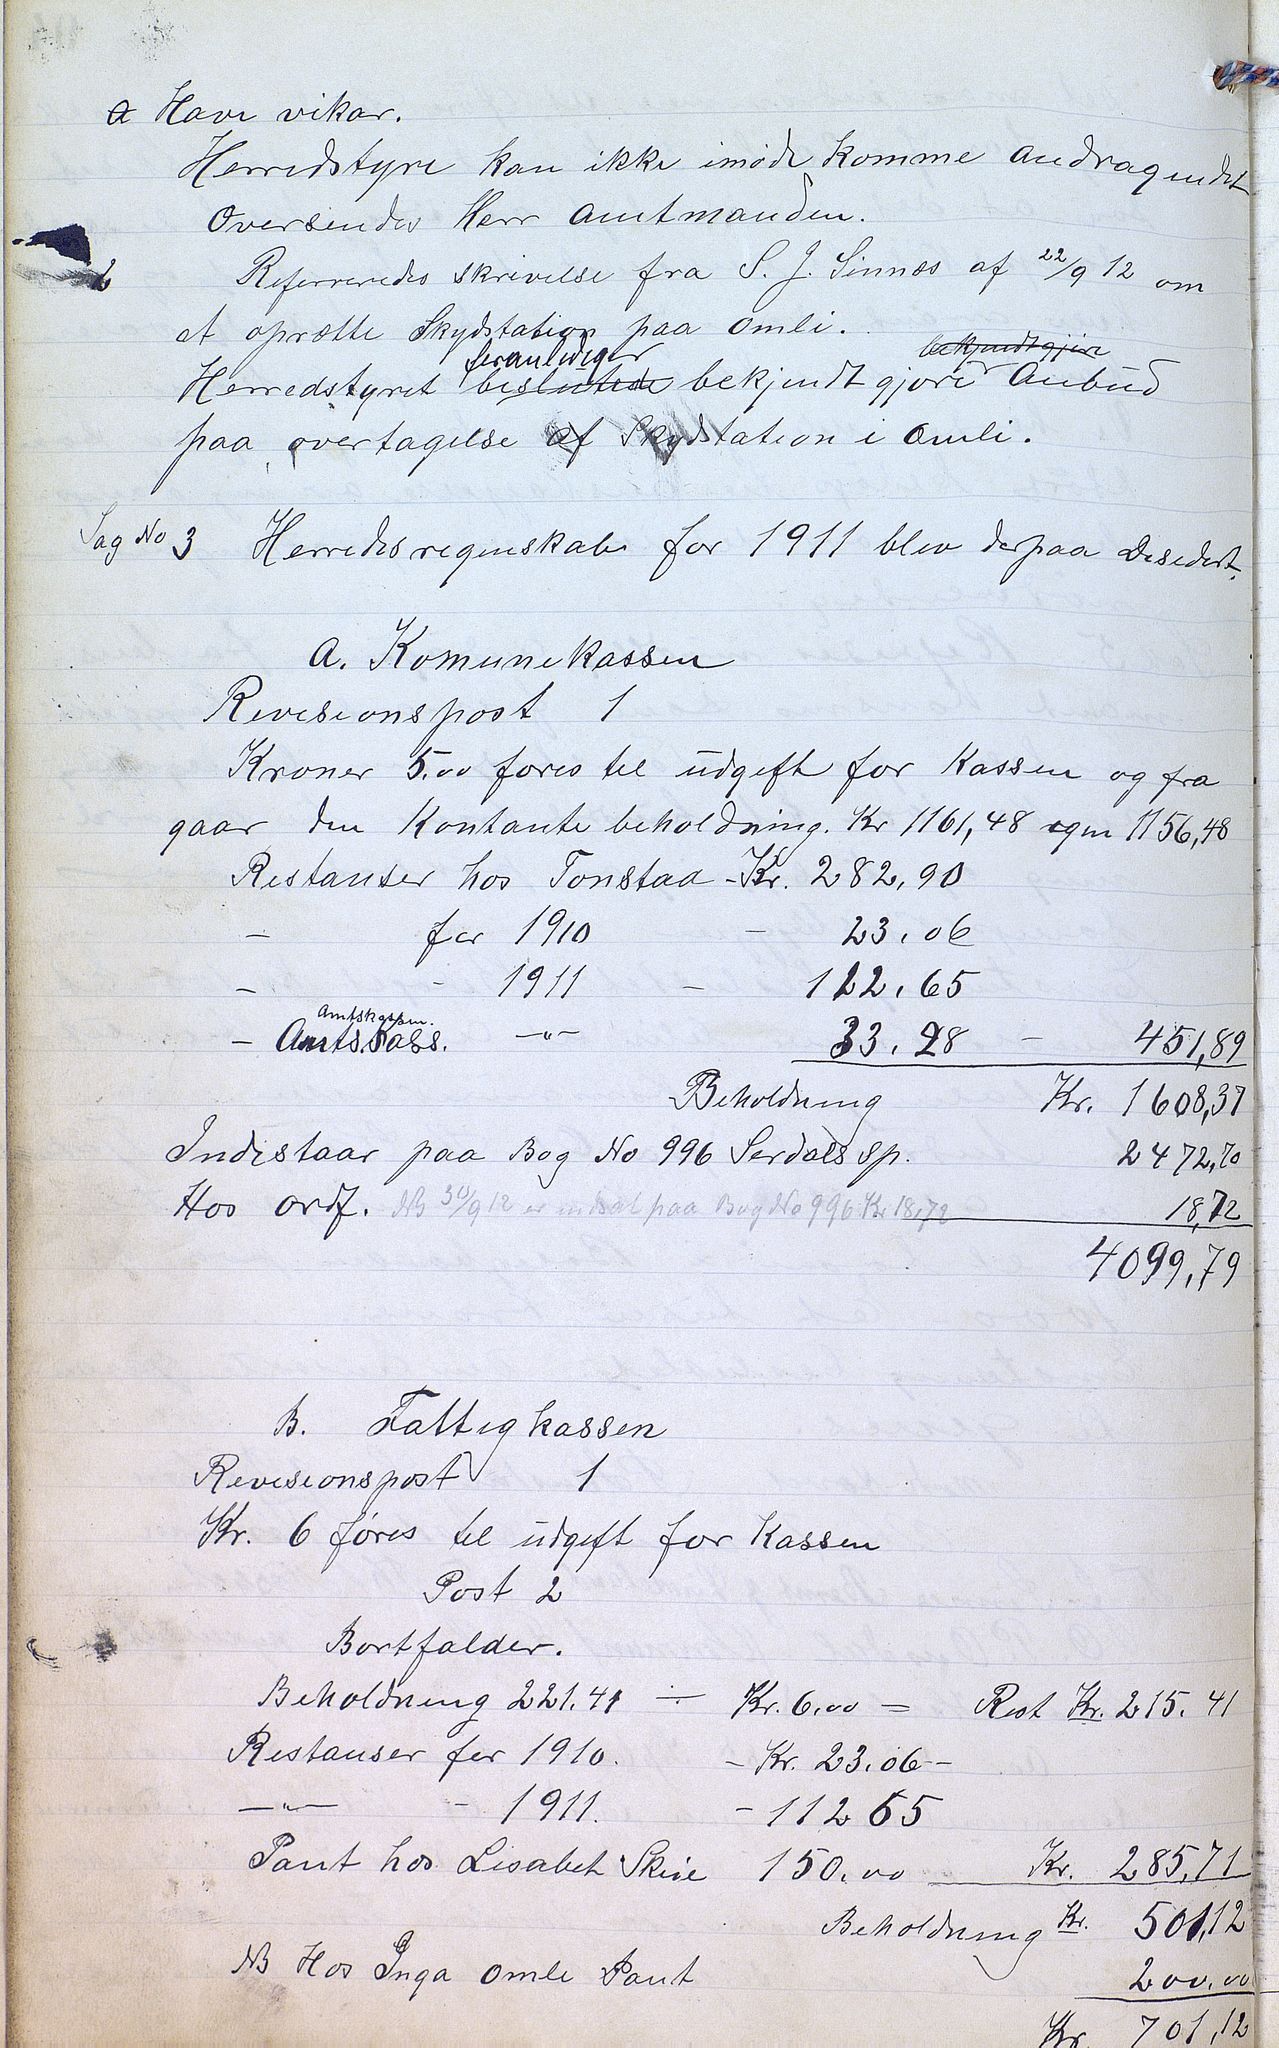 a Have vikar.
Herredstyre kan ikke imøde komme andragendet
Oversendes Herr amtmanden.
2 Referreredes skrivelse fra S. J. Sinnes af 22/9 12 om
at oprætte Skydstation paa omli.
foranlediger bekjendtgjøre
Herredstyret besluttede bekjendt gjøre Anbud
paa overtagelse af Skydstation i omli.
Sag No 3 Herredsregnskabe for 1911 blev derpaa Desedert.
A. Komunekassen
Revesionspost 1
Kroner 5.00 føres til udgift for Kassen og fra
gaar den Kontante beholdning. Kr 1161,48 igen 1156,48
Restanser hos Tonstad - Kr. 282,90
- for 1910 - 23.06
- - 1911 - 122.65
Amtskassen.
- Amts. -"- 33.28 - 451,89
Beholdning Kr. 1608,37
Indestaar paa Bog No 996 Serdals sp. 2472,70
Hos ordf. NB 30/9 12 er indsat paa Bog No 996 Kr 18,72 18,72
4099,79
B. Fattigkassen
Revesionspost 1
Kr. 6 føres til udgift for Kassen
Post 2
Bortfalder.
Beholdning 221.41 ÷ Kr. 6.00 = Rest Kr. 215.41
Restanser for 1910. - Kr. 23.06 -
-"- - 1911. - 112 65
Pant hos Lisabet Skeie 150.00 Kr. 285,71
Beholdning Kr. 501,12
NB Hos Inga Omli Pant 200.00
Kr. 701,12